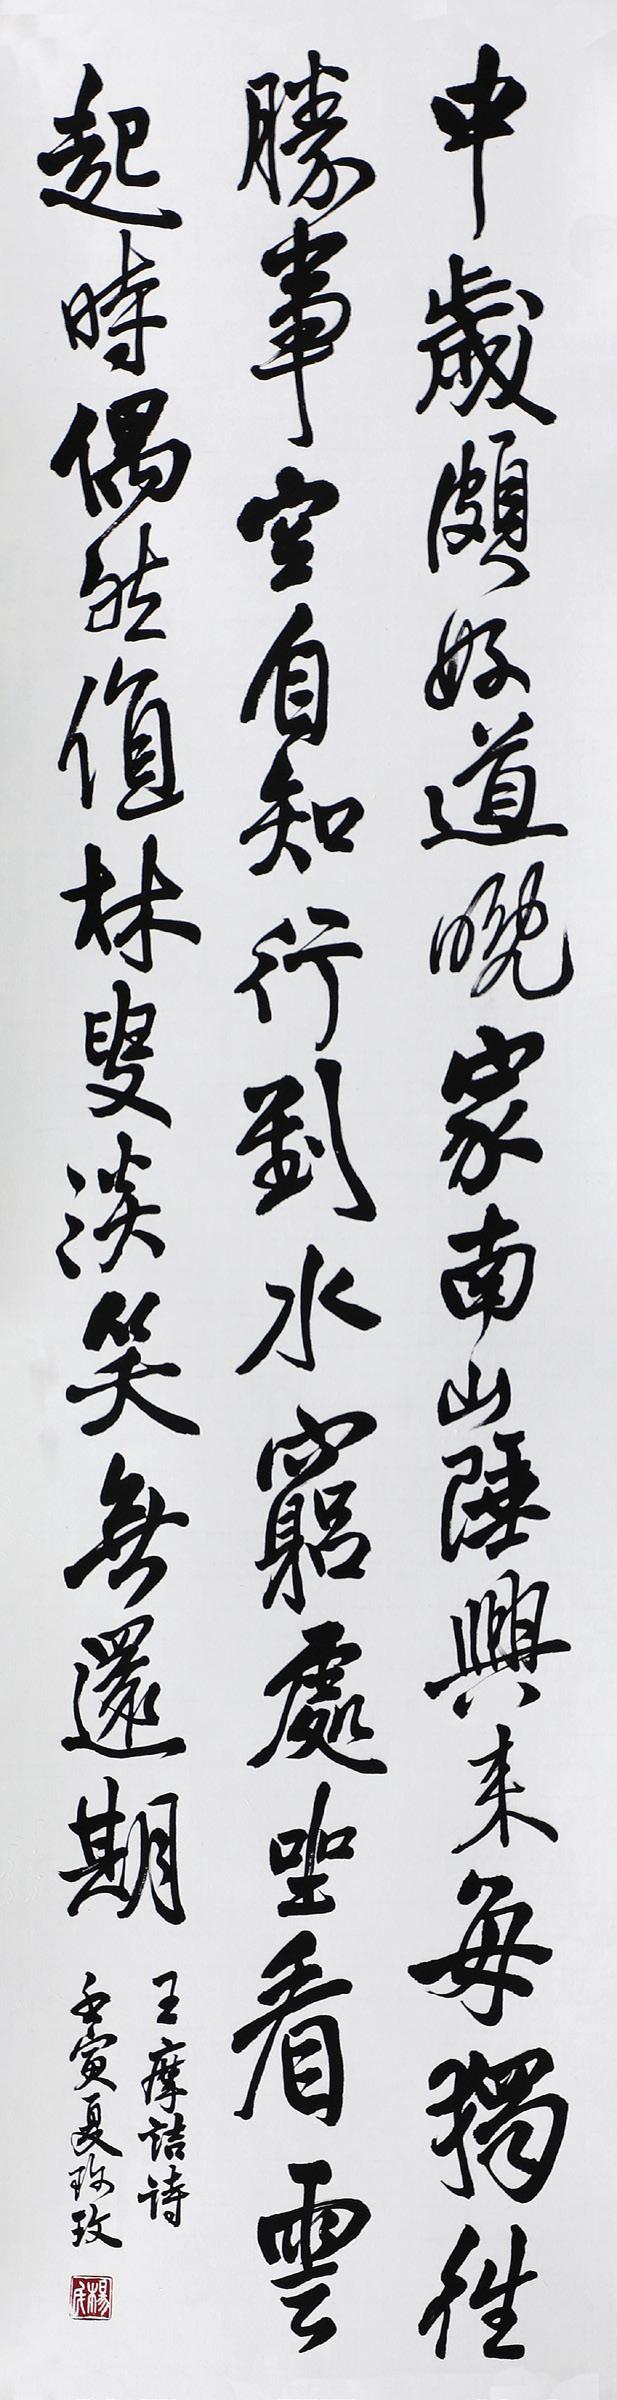 中歲頗好道晚家南山陲興来每獨往
勝事空自知行到水窮處坐看雲
起時偶然值林叟淡笑無還期
王摩詰诗
壬寅夏玫